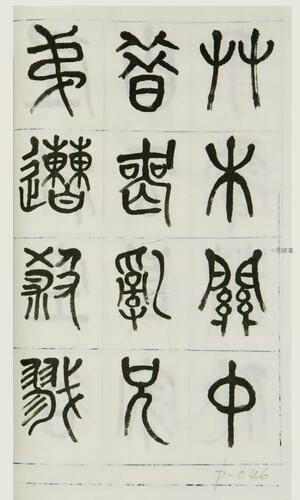 艸木關中
昔喪亂兄
弟遭殺戮
P-046